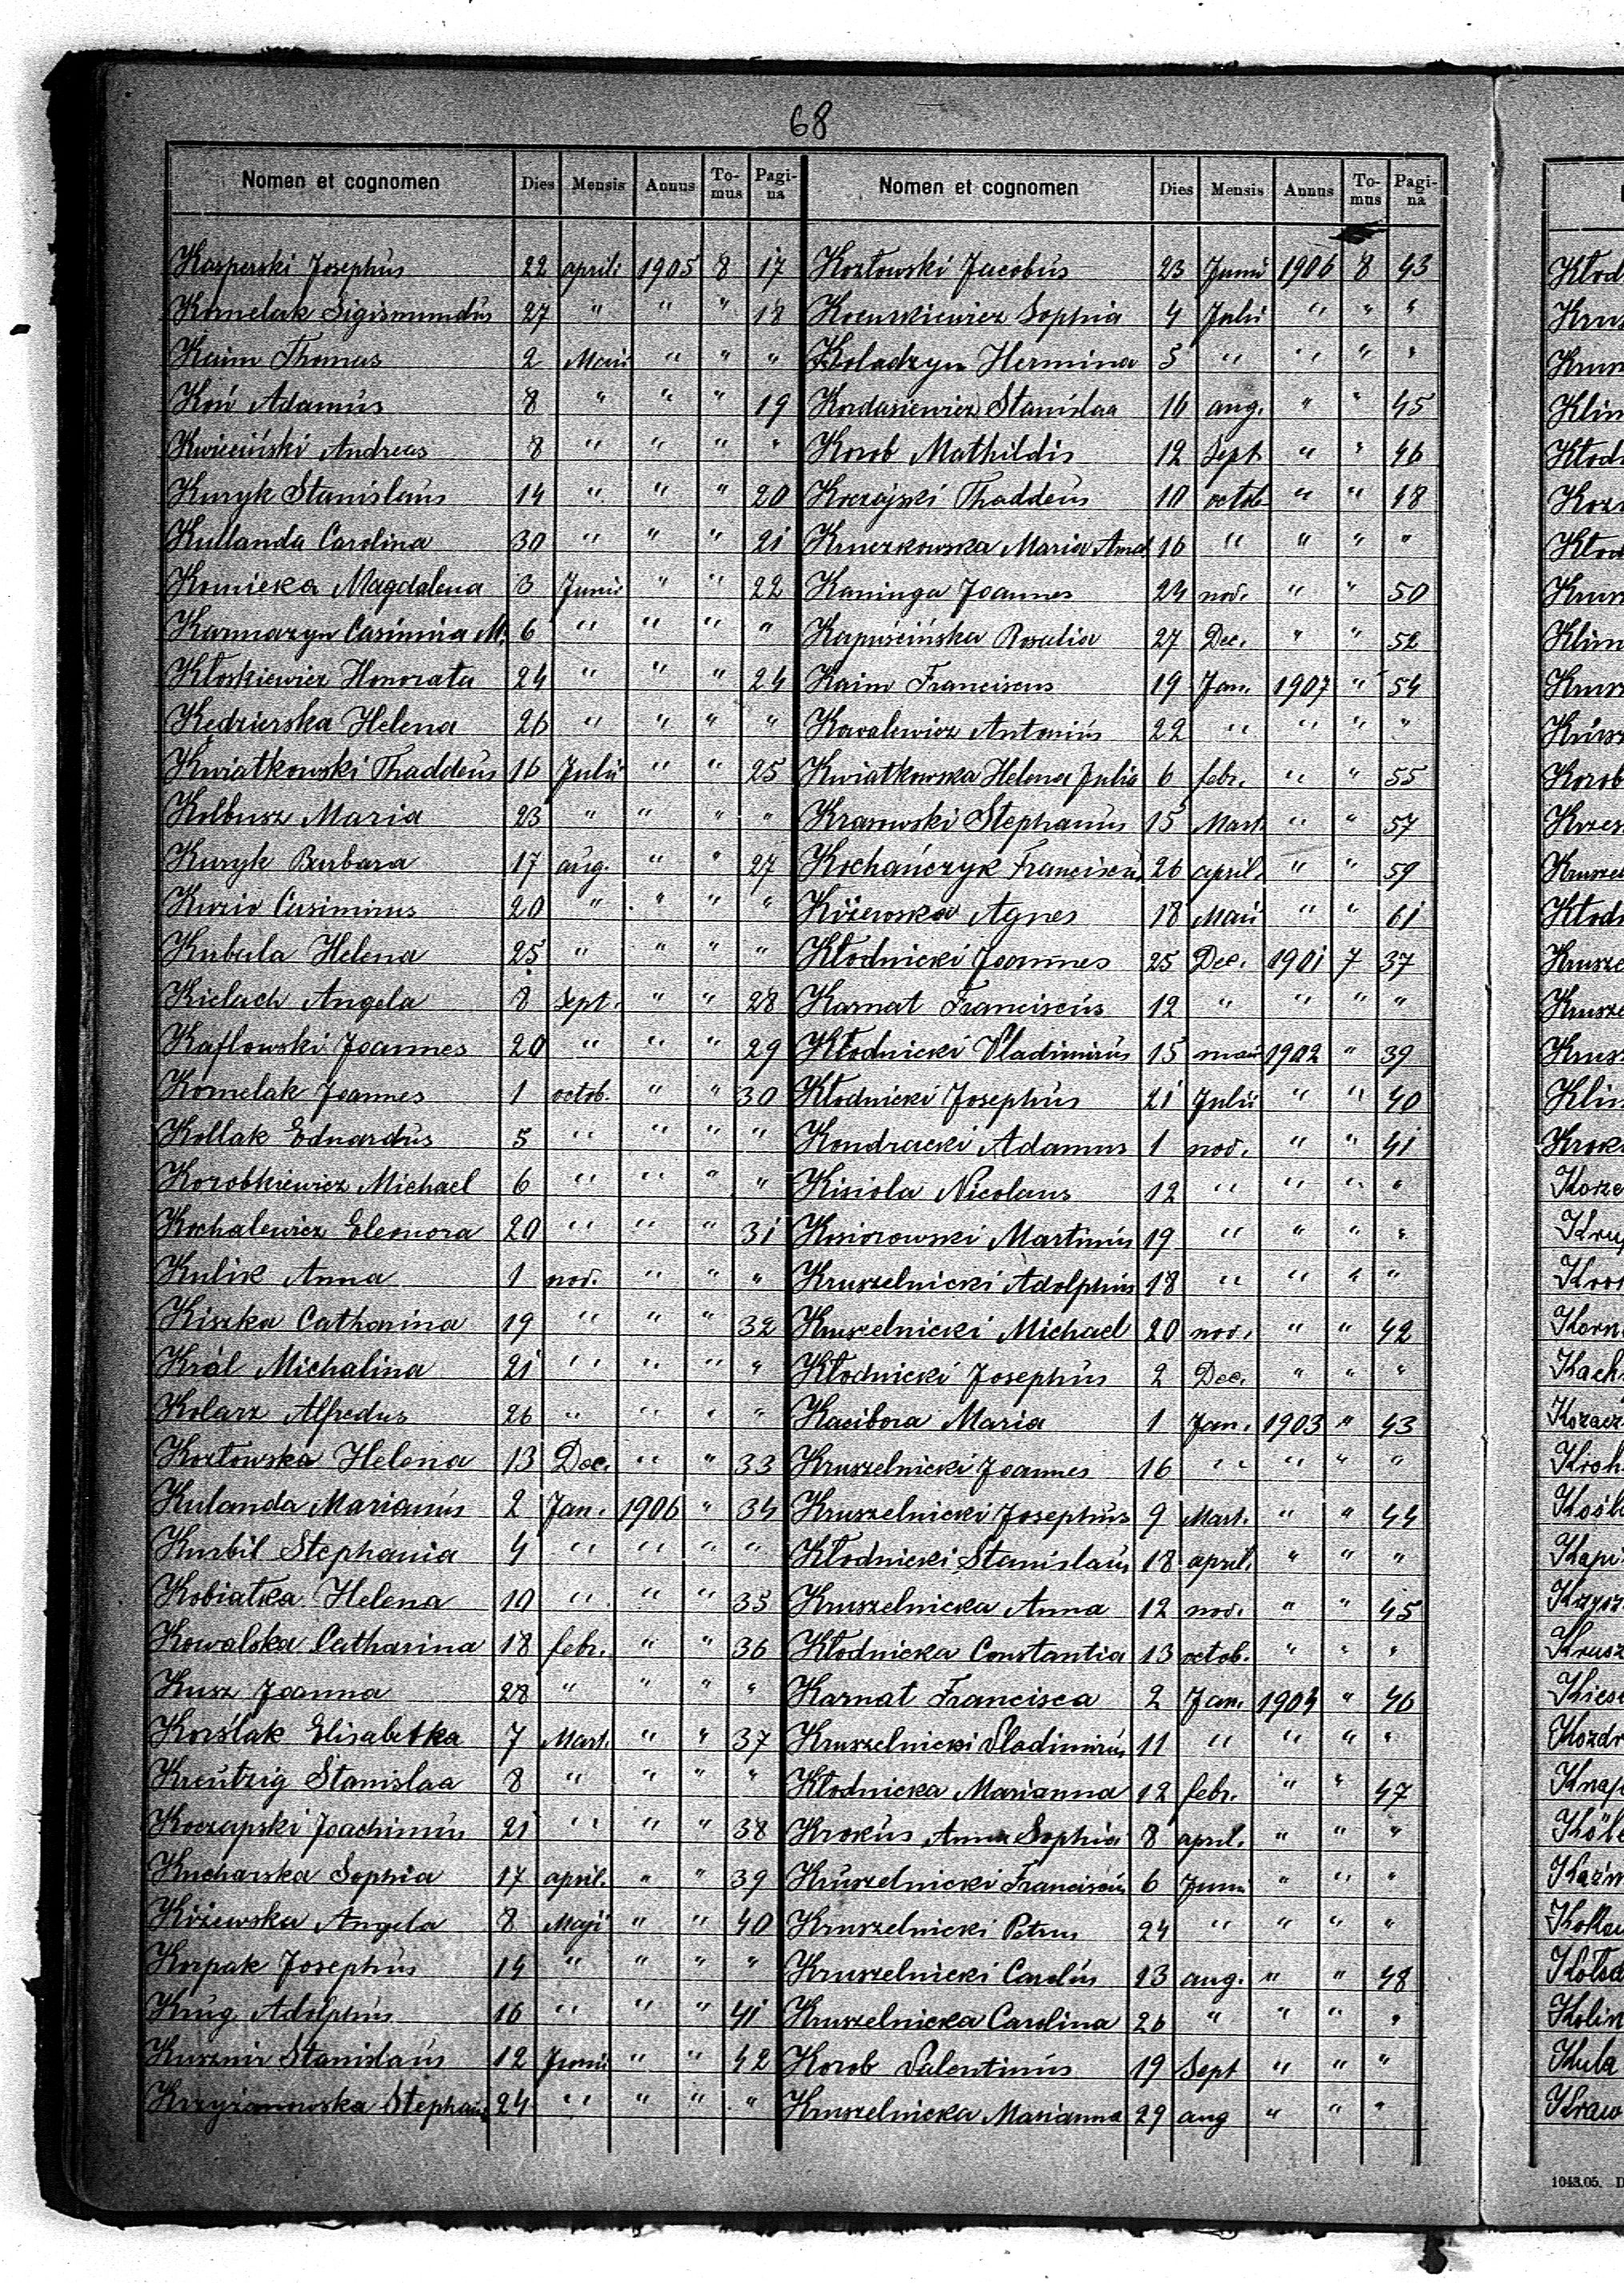 68
Nomen et cognomen Dies Mensis Annus To-mus Pagi-na
Kasperski Josephus 22 aprili 1905 8 17
Komelak Sigismundus 27 " " " 18
Kaim Thomas 2 Maii " " "
Koń Adamus 8 " " " 19
Kwieciński Andreas 8 " " " "
Kuryk Stanislaus 14 " " " 20
Kullanda Carolina 30 " " " 21
Kornicka Magdalena 3 Junii " " 22
Karmazyn Casimira M. 6 " " " "
Kłoskiewicz Honorata 24 " " " 24
Kędzierska Helena 26 " " " "
Kwiatkowski Thaddeus 16 Julii " " 25
Kolbusz Maria 23 " " " "
Kuryk Barbara 17 aug. " " 27
Kuzio Casimirus 20 " " " "
Kubala Helena 25 " " " "
Kielach Angela 8 Sept. " " 28
Kaflowski Joannes 20 " " " 29
Komelak Joannes 1 octob. " " 30
Kollak Eduardus 5 " " " "
Korobkiewicz Michael 6 " " " "
Kochalewicz Eleonora 20 " " " 31
Kulik Anna 1 nov. " " "
Kiszka Catharina 19 " " " 32
Král Michalina 21 " " " "
Kolarz Alfredus 26 " " " "
Kozłowska Helena 13 Dec. " " 33
Kulanda Marianus 2 Jan. 1906 " 34
Kurbil Stephania 4 " " " "
Kobiałka Helena 10 " " " 35
Kowalska Catharina 18 febr. " " 36
Kusz Joanna 28 " " " "
Korślak Elisabetka 7 Mart. " " 37
Kreutzig Stanislaa 8 " " " "
Koczapski Joachimus 21 " " " 38
Kucharska Sophia 17 april. " " 39
Kiżewska Angela 8 Maji " " 40
Korpak Josephus 14 " " " "
Krug Adolphus 16 " " " 41
Kusznir Stanislaus 12 Junii " " 42
Krzyżanowska 24 " " " "
Nomen et cognomen Dies Mensis Annus To-mus Pagi-na
Kozłowski Jacobus 23 Junii 1906 8 43
Kocurkiewicz Sophia 4 Julii " " "
Koladzyn Hermina 5 " " " "
Kordasiewicz Stanislaa 16 aug. " " 45
Korob Mathildis 12 Sept " " 46
Thaddeus 10 octob " " 48
Kruczkowska Maria 16 " " " "
Kaninga Joannes 24 nov. " " 50
Kapuścińska Rosalia 27 Dec. " " 52
Kaim Franciscus 19 Jan. 1907 " 54
Kowalewicz Antonius 22 " " " "
Kwiatkowska Helena Julia 6 febr. " " 55
Krasowski Stephanus 15 Mart. " " 57
Kochańczyk Franciscus 26 april. " " 59
Kiżewska Agnes 18 Maii " " 61
Kłodnicki Joannes 25 Dec. 1901 7 37
Karnat Franciscus 12 " " " "
Kłodnicki Vladimirus 15 maii 1902 " 39
Kłodnicki Josephus 21 Julii " " 40
Kondracki Adamus 1 nov. " " 41
Kisiola Nicolaus 12 " " " "
Kosiorowski Martinus 19 " " " "
Kruszelnicki Adolphus 18 " " " "
Kruszelnicki Michael 20 nov. " " 42
Kłodnicki Josephus 2 Dec. " " "
Kacibora Maria 1 Jan. 1903 " 43
Kruszelnicki Joannes 16 " " " "
Kruszelnicki Josephus 9 Mart. " " 44
Kłodnicki Stanislaus 18 april. " " "
Kruszelnicka Anna 12 nov. " " 45
Kłodnicka Constantia 13 octob. " " "
Karnat Francisca 2 Jan. 1904 " 46
Kruszelnicki Vladimirus 11 " " " "
Kłodnicka Marianna 12 febr. " " 47
Krokus Anna Sophia 8 april. " " "
Kruszelnicki Franciscus 6 Junii " " "
Kruszelnicki Petrus 24 " " " "
Kruszelnicki Carolus 13 aug. " " 48
Kruszelnicka Carolina 26 " " " "
Korob Valentinus 19 Sept " " "
Kruszelnicka Marianna 29 aug " " "
1043.05.